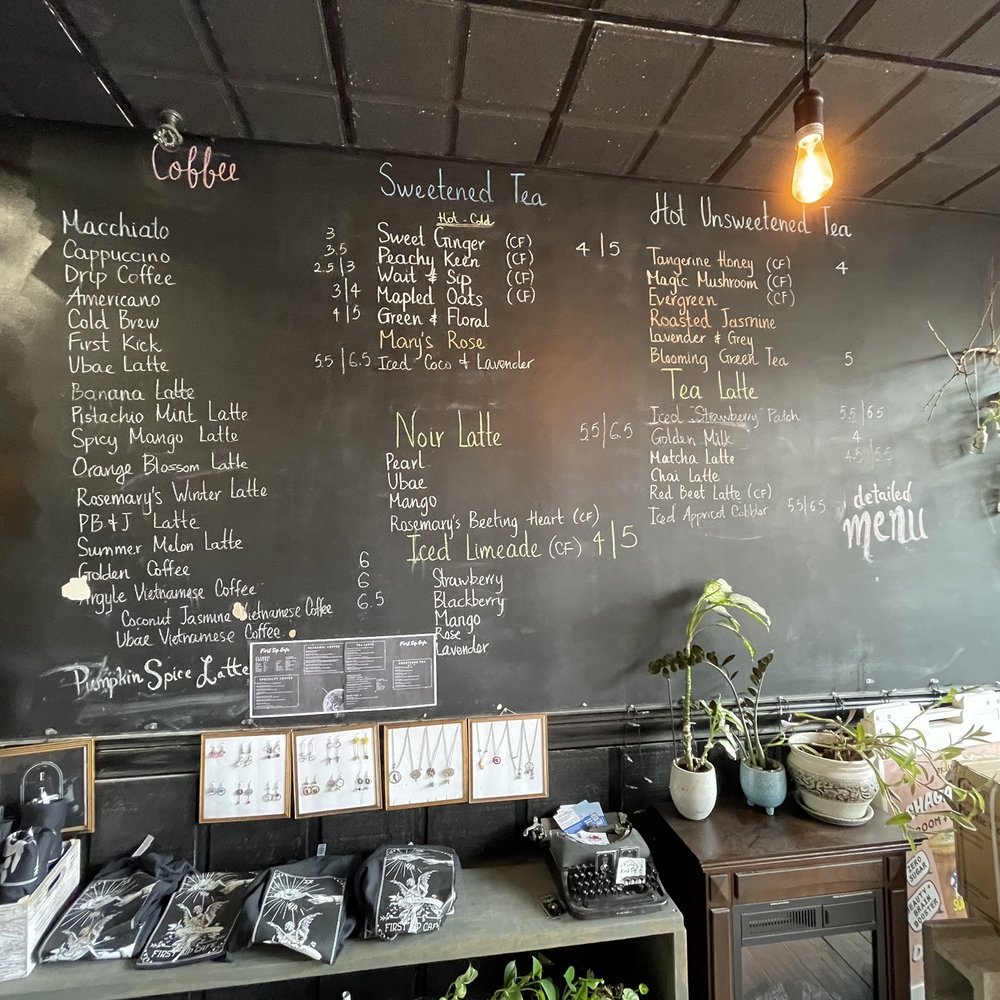 Coffee
Macchiato 3
Cappuccino 3.5
Drip Coffee 2.5|3
Americano 3|4
Cold Brew 4|5
First Kick
Ubae Latte 5.5|6.5
Banana Latte
Pistachio Mint Latte
Spicy Mango Latte
Orange Blossom Latte
Rosemary's Winter Latte
PB&J Latte
Summer Melon Latte
Golden Coffee 6
Argyle Vietnamese Coffee 6
Coconut Jasmine Vietnamese Coffee 6.5
Ubae Vietnamese Coffee
Pumpkin Spice Latte
Sweetened Tea
Hot - Cold
Sweet Ginger (CF) 4|5
Peachy Keen (CF)
Wait & Sip (CF)
Mapled Oats (CF)
Green & Floral
Mary's Rose
Iced Coco & Lavender
Noir Latte 5.5|6.5
Pearl
Ubae
Mango
Rosemary's Beeting Heart (CF)
Iced Limeade (CF) 4|5
Strawberry
Blackberry
Mango
Rose
Lavender
Hot Unsweetened Tea
Tangerine Honey (CF) 4
Magic Mushroom (CF)
Evergreen (CF)
Roasted Jasmine
Lavender & Grey
Blooming Green Tea 5
Tea Latte
Iced Strawberry Patch 5.5|6.5
Golden Milk 4
Matcha Latte 4.5|5.5
Chai Latte
Red Beet Latte (CF)
Iced Appricot Cobbler 5.5|6.5
detailed
menu
First Sip Cafe
First Sip Cafe
FIRST SIP CAFE
FIRST SIP CAFE
ZERO
SUGAR
BEAUTY +
BRAIN
BOOSTER